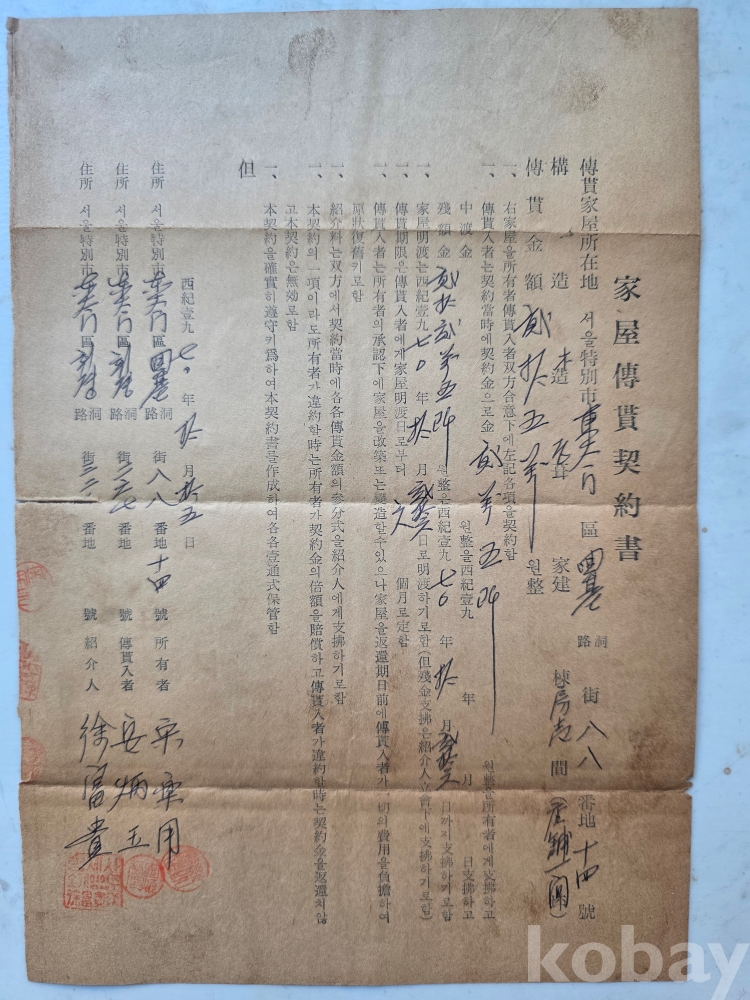 家屋傳貰契約書
傳貰家屋所在地 서울特別市 東大門 區 回基 洞路 街 八八 番地 十四 號
構造 木造 家建 棟 房 間
傳貰金額 貳拾五萬 원整
一、右家屋을所有者傳貰入者双方合意下에左記各項을契約함
一、傳貰入者는契約當時에契約金으로金 貳萬五阡 원整을所有者에게支拂하고
中渡金 원整을西紀壹九 年 月 日支拂하고
殘額金 貳拾貳萬五阡 원整은西紀壹九 七0 年 拾 月 日까지支拂하기로함
一、家屋明渡는西紀壹九 七0 年 拾 月 日로明渡하기로함(但殘金支拂은紹介人立會下에支拂하기로함)
一、傳貰期限은傳貰入者에게家屋明渡日로부터 六 個月로定함
傳貰入者는所有者의承認下에家屋을改築또는變造할수있으나家屋을返還期日前에傳貰入者가一切의費用을負擔하여
原狀復舊키로함
一、紹介料는双方에서契約當時에各各傳貰金額의參分式을紹介人에게支拂하기로함
一、本契約의一項이라도所有者가違約할時는所有者가契約金의倍額을賠償하고傳貰入者가違約할時는契約金을返還치않
고本契約은無効로함
一、本契約을確實히遵守키爲하여本契約書를作成하여各各壹通式保管함
但
西紀壹九 七0 年 拾 月 拾五 日
住所 서울特別市 東大門 區 回基 洞路 街 八八 番地 十四 號 所有者 宋 用
住所 서울特別市 東大門 區 洞路 街 番地 號 傳貰入者 安炳玉
住所 서울特別市 東大門 區 洞路 街 番地 號 紹介人 徐富貴
kobay